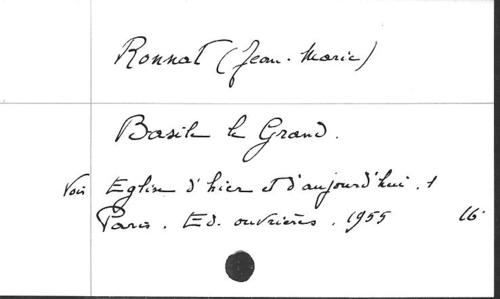 Ronnat (Jean-Marie)
Basile le Grand.
Voir Eglise d'hier et d'aujourd'hui. 1
Paris. Ed. ouvrières. 1955 16°